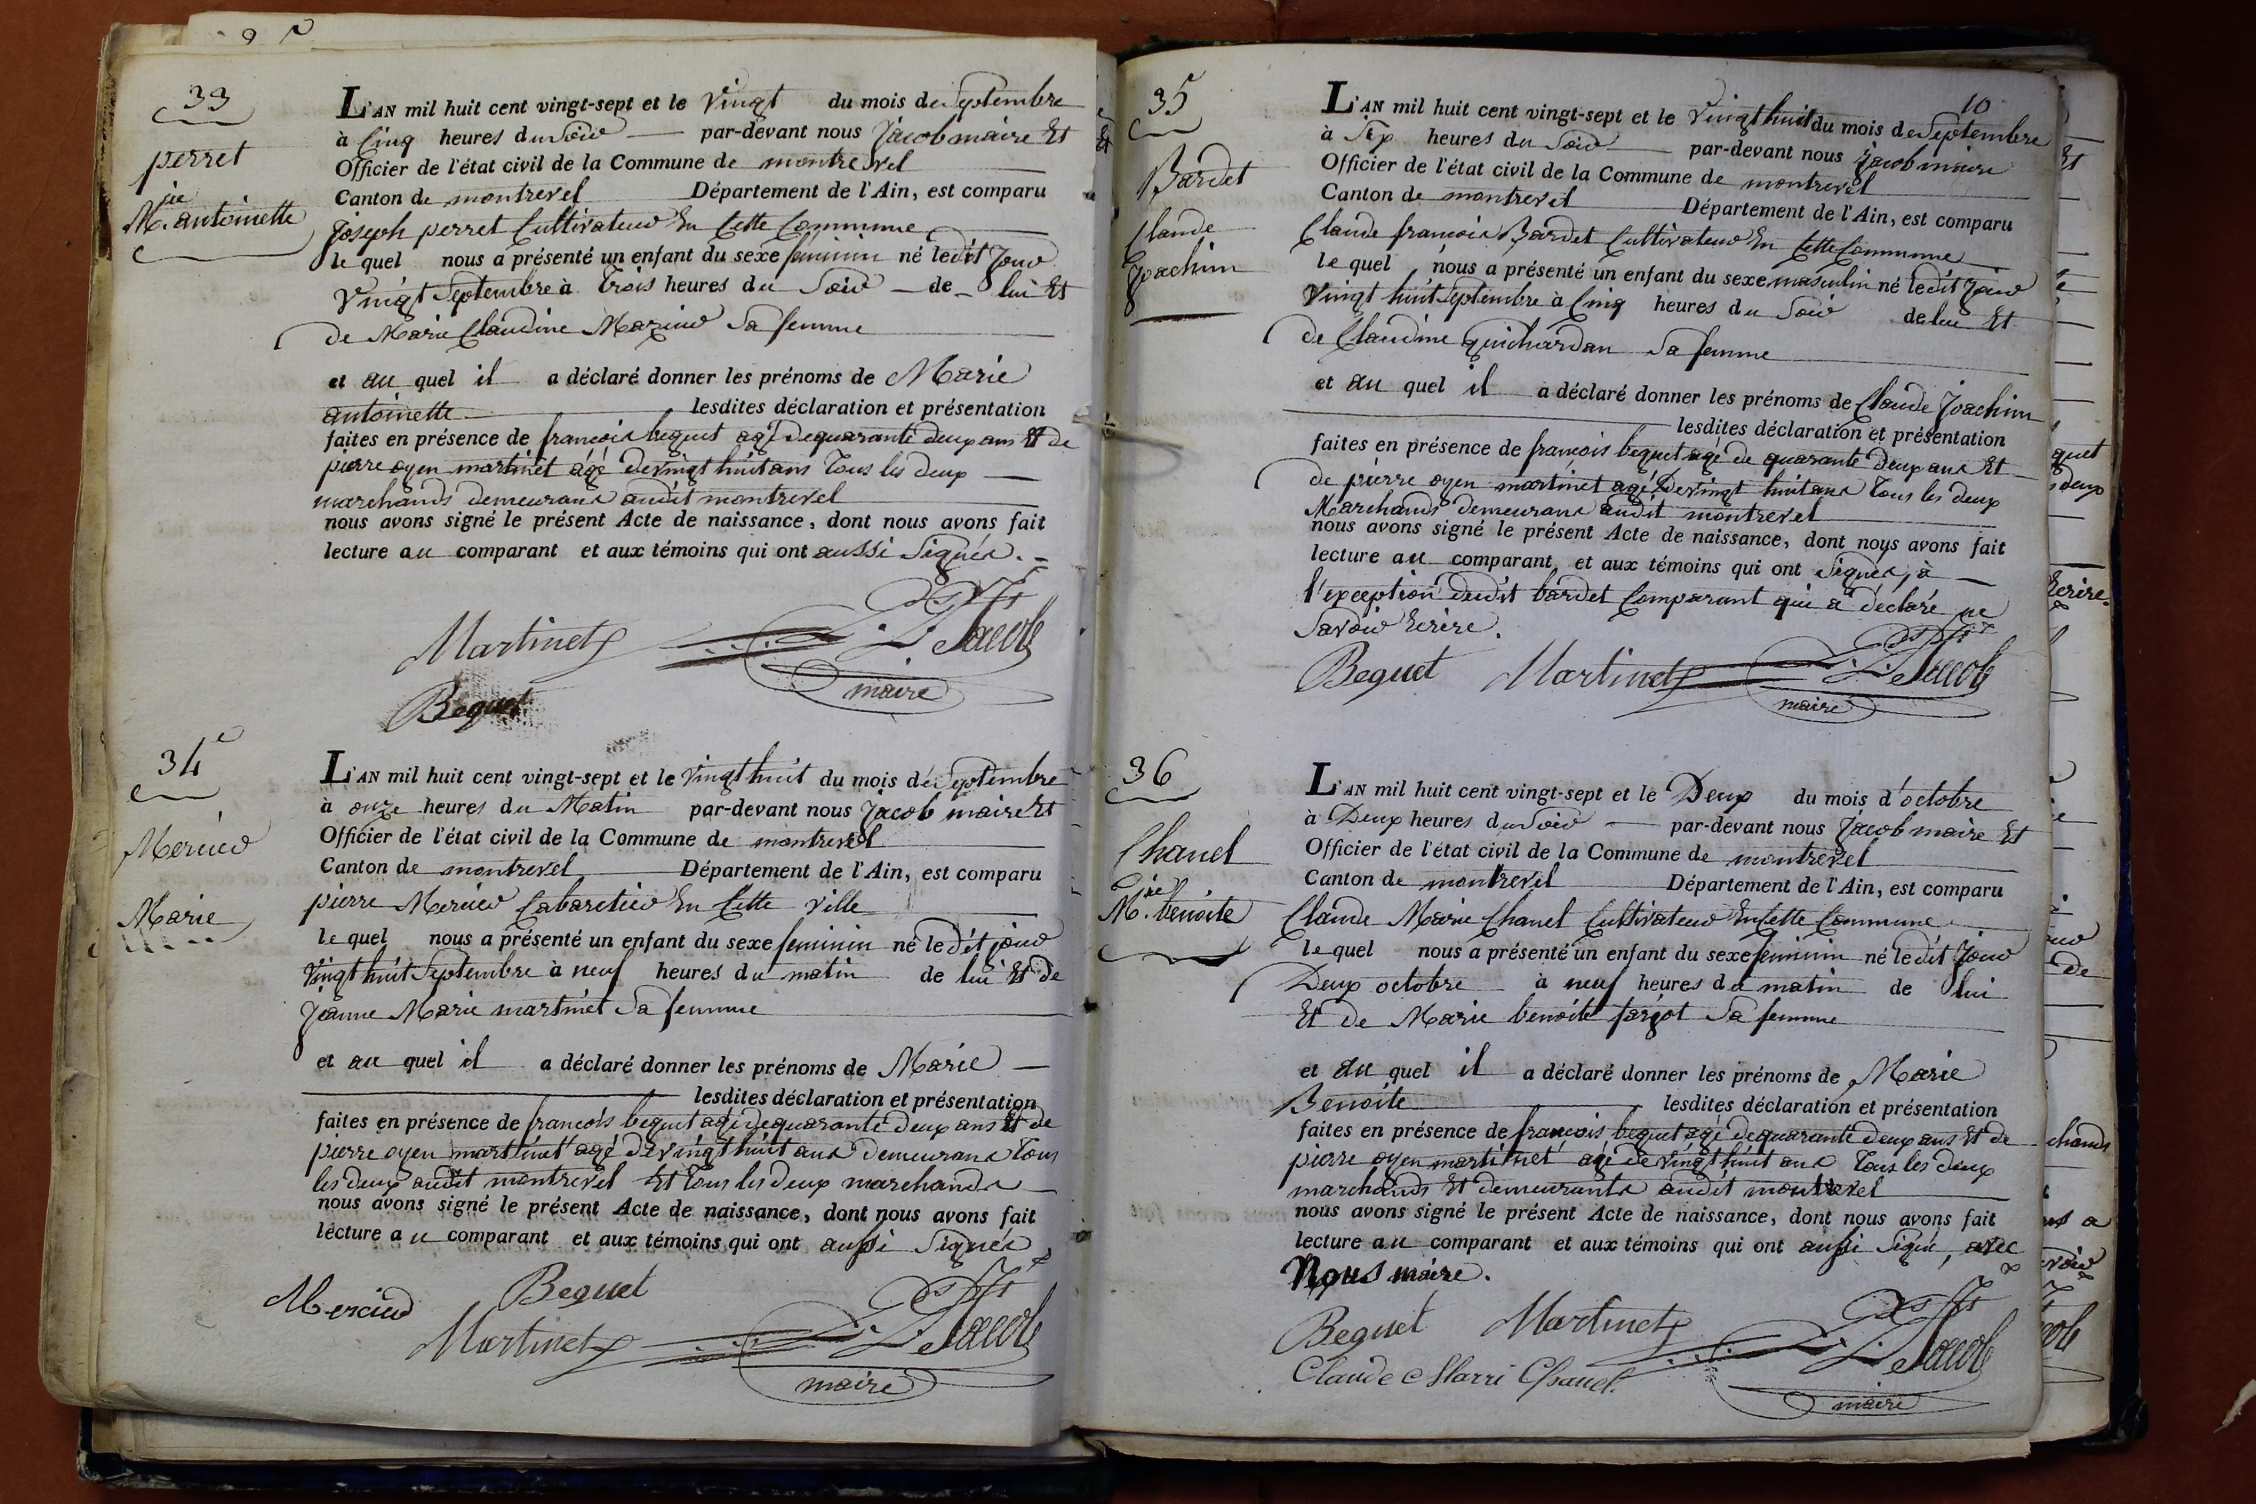 33
perret
M.ie antoinette
L'AN mil huit cent vingt-sept et le Vingt du mois de Septembre
à Cinq heures du Soir par-devant nous Jacob maire Et
Officier de l'état civil de la Commune de montrevel
Canton de montrevel Département de l'Ain, est comparu
Joseph perret Cultivateur En Cette Commune
le quel nous a présenté un enfant du sexe feminin né ledit Jour
Vingt Septembre à Trois heures du Soir de lui Et
de Marie Claudine sa femme
et au quel il a déclaré donner les prénoms de Marie
antoinette lesdites déclaration et présentation
faites en présence de françois bequet agé de quarante deux ans Et de
pierre oyen martinet agé de vingt huit ans Tous les deux
marchands demeurans audit montrevel
nous avons signé le présent Acte de naissance, dont nous avons fait
lecture au comparant et aux témoins qui ont aussi Signés.
Martinet Jacob
maire
Bequet
34
Mercier
Marie
L'AN mil huit cent vingt-sept et le vingt huit du mois de Septembre
à onze heures du Matin par-devant nous Jacob maire Et
Officier de l'état civil de la Commune de montrevel
Canton de montrevel Département de l'Ain, est comparu
pierre Mercier Cabaretier En Cette ville
le quel nous a présenté un enfant du sexe feminin né le dit jour
vingt huit Septembre à neuf heures du matin de lui Et de
Jeanne Marie martinet sa femme
et au quel il a déclaré donner les prénoms de Marie
lesdites déclaration et présentation
faites en présence de francois bequet agé de quarante deux ans Et de
pierre oyen martinet agé de vingt huit ans demeurans Tous
les deux audit montrevel Et Tous les deux marchands
nous avons signé le présent Acte de naissance, dont nous avons fait
lecture au comparant et aux témoins qui ont aussi Signés
Mercier Bequet
Martinet Jacob
maire
10
35
Bardet
Claude
Joachim
L'AN mil huit cent vingt-sept et le Vingt huit du mois de Septembre
à Six heures du Soir par-devant nous Jacob maire
Officier de l'état civil de la Commune de montrevel
Canton de montrevel Département de l'Ain, est comparu
Claude francois Bardet Cultivateur En Cette Commune
le quel nous a présenté un enfant du sexe masculin né ledit jour
Vingt huit Septembre à Cinq heures du Soir de lui Et
de Claudine Guichardan sa femme
et au quel il a déclaré donner les prénoms de Claude Joachim
lesdites déclaration et présentation
faites en présence de françois bequet agé de quarante deux ans Et
de pierre oyen martinet agé de vingt huit ans Tous les deux
Marchands demeurans audit montrevel
nous avons signé le présent Acte de naissance, dont nous avons fait
lecture au comparant et aux témoins qui ont Signés, à
l'exception dudit bardet Comparant qui a déclaré ne
Savoir Ecrire.
Bequet Martinet Jacob
maire
36
Chanel
M.rie benoite
L'AN mil huit cent vingt-sept et le Deux du mois d'octobre
à Deux heures du Soir par-devant nous Jacob maire Et
Officier de l'état civil de la Commune de montrevel
Canton de montrevel Département de l'Ain, est comparu
Claude Marie Chanel Cultivateur En Cette Commune
le quel nous a présenté un enfant du sexe feminin né ledit Jour
Deux octobre à neuf heures du matin de lui
Et de Marie benoite fargot sa femme
et au quel il a déclaré donner les prénoms de Marie
Benoite lesdites déclaration et présentation
faites en présence de françois bequet agé de quarante deux ans Et de
pierre oyen martinet agé de vingt huit ans Tous les deux
marchands Et demeurants audit montrevel
nous avons signé le présent Acte de naissance, dont nous avons fait
lecture au comparant et aux témoins qui ont aussi Signé, avec
Nous maire.
Bequet Martinet Jacob
Claude Marri Chanel.
maire